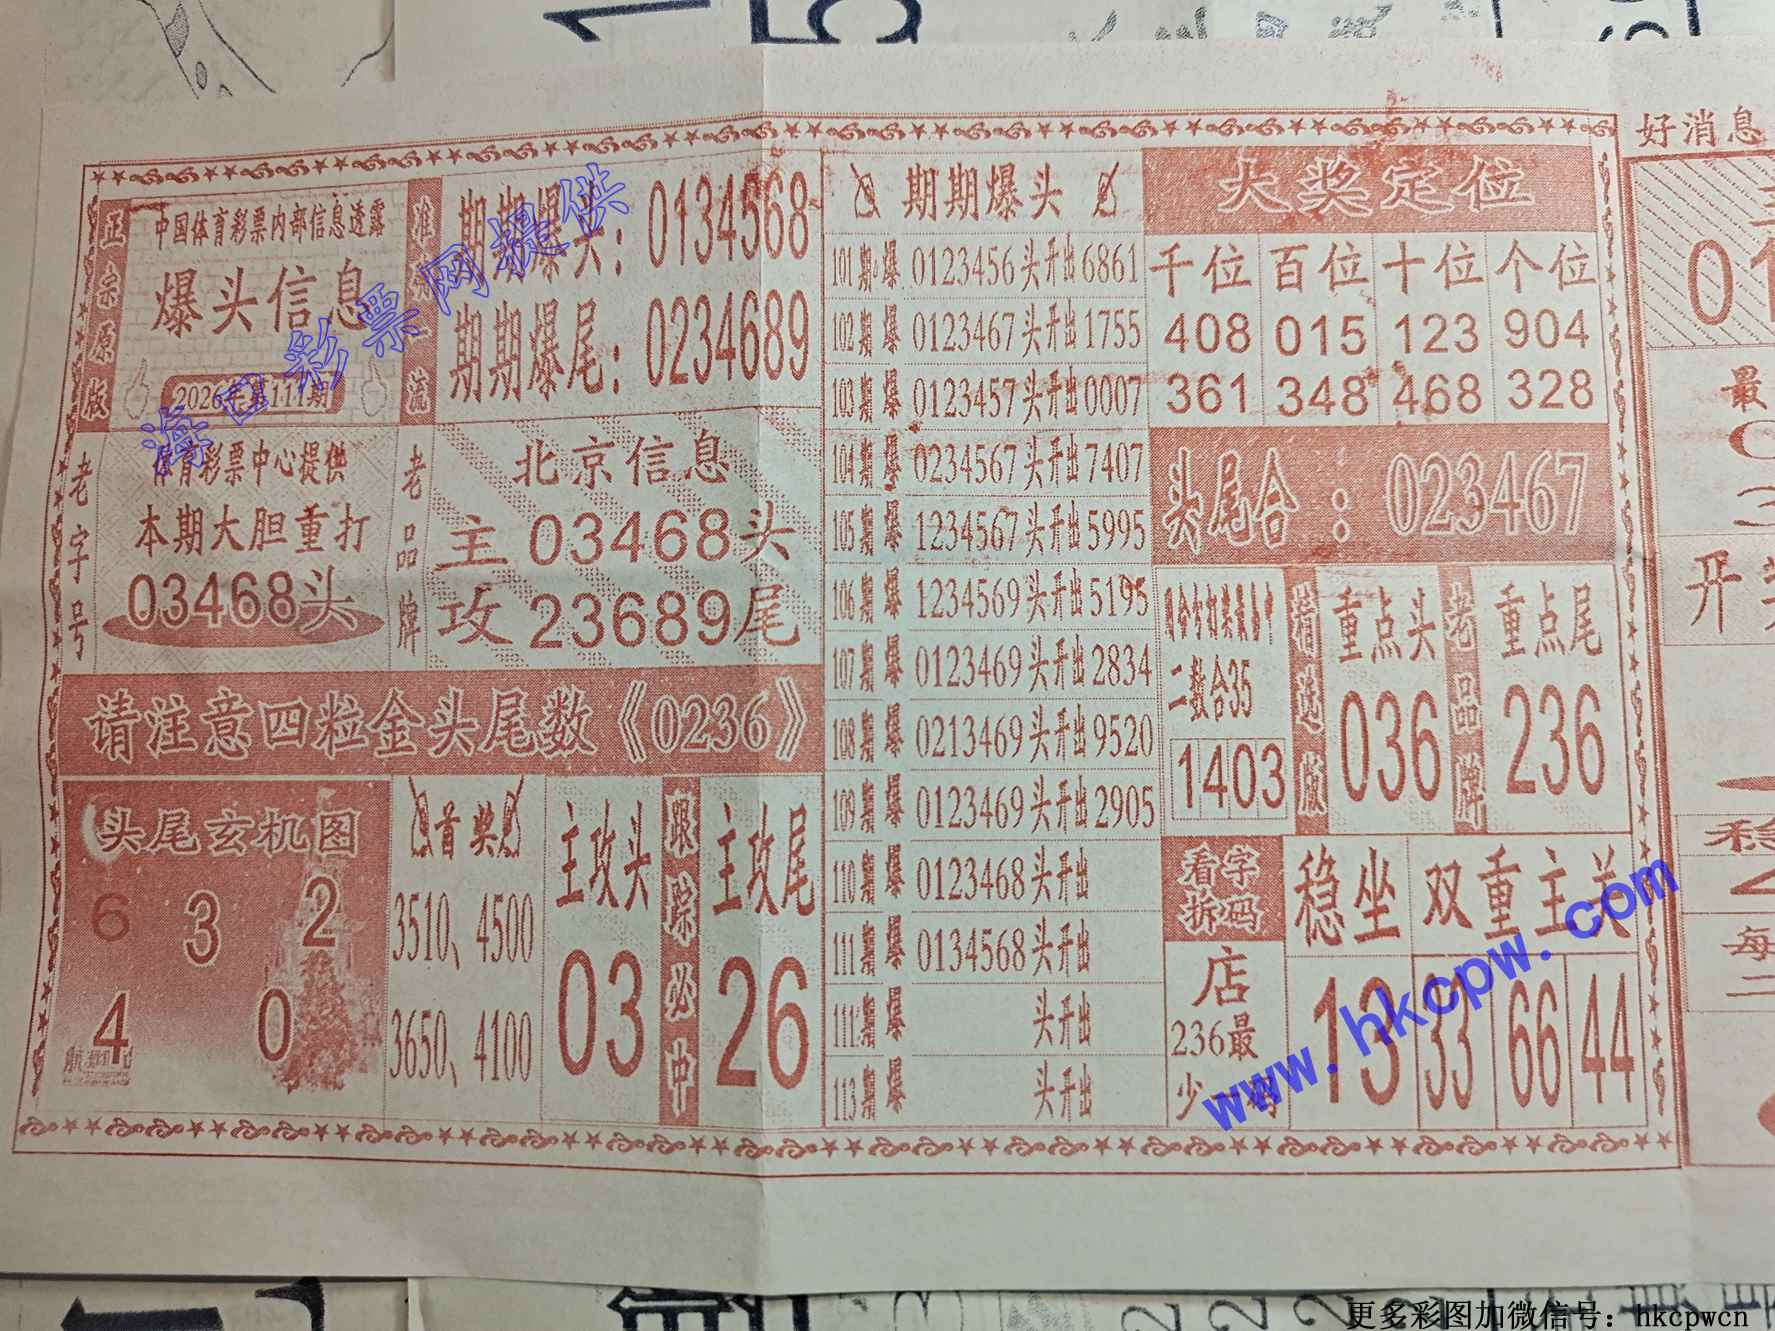 正宗原版
中国体育彩票内部信息透露
爆头信息
2026年第111期
准确一流
期期爆头：0134568
期期爆尾：0234689
老字号
体育彩票中心提供
本期大胆重打
03468头
老品牌
北京信息
主03468头
攻23689尾
请注意四粒金头尾数《0236》
头尾玄机图
6 3 2
4 0
首奖
3510、4500
3650、4100
主攻头
03
跟踪必中
主攻尾
26
期期爆头
101期 爆 0123456头开出6861
102期 爆 0123467头开出1755
103期 爆 0123457头开出0007
104期 爆 0234567头开出7407
105期 爆 1234567头开出5995
106期 爆 1234569头开出5195
107期 爆 0123469头开出2834
108期 爆 0213469头开出9520
109期 爆 0123469头开出2905
110期 爆 0123468头开出
111期 爆 0134568头开出
111期 爆 头开出
113期 爆 头开出
大奖定位
千位 百位 十位 个位
408 015 123 904
361 348 468 328
头尾合：023467
二数合35
1403
精选版
重点头
036
老品牌
重点尾
236
看字拆码
店
236最
少一码
稳坐
13
双重主关
33 66 44
好消息
01
最
开
稳
每
二
海口彩票网提供
www.hkcpw.com
更多彩图加微信号：hkcpwcn